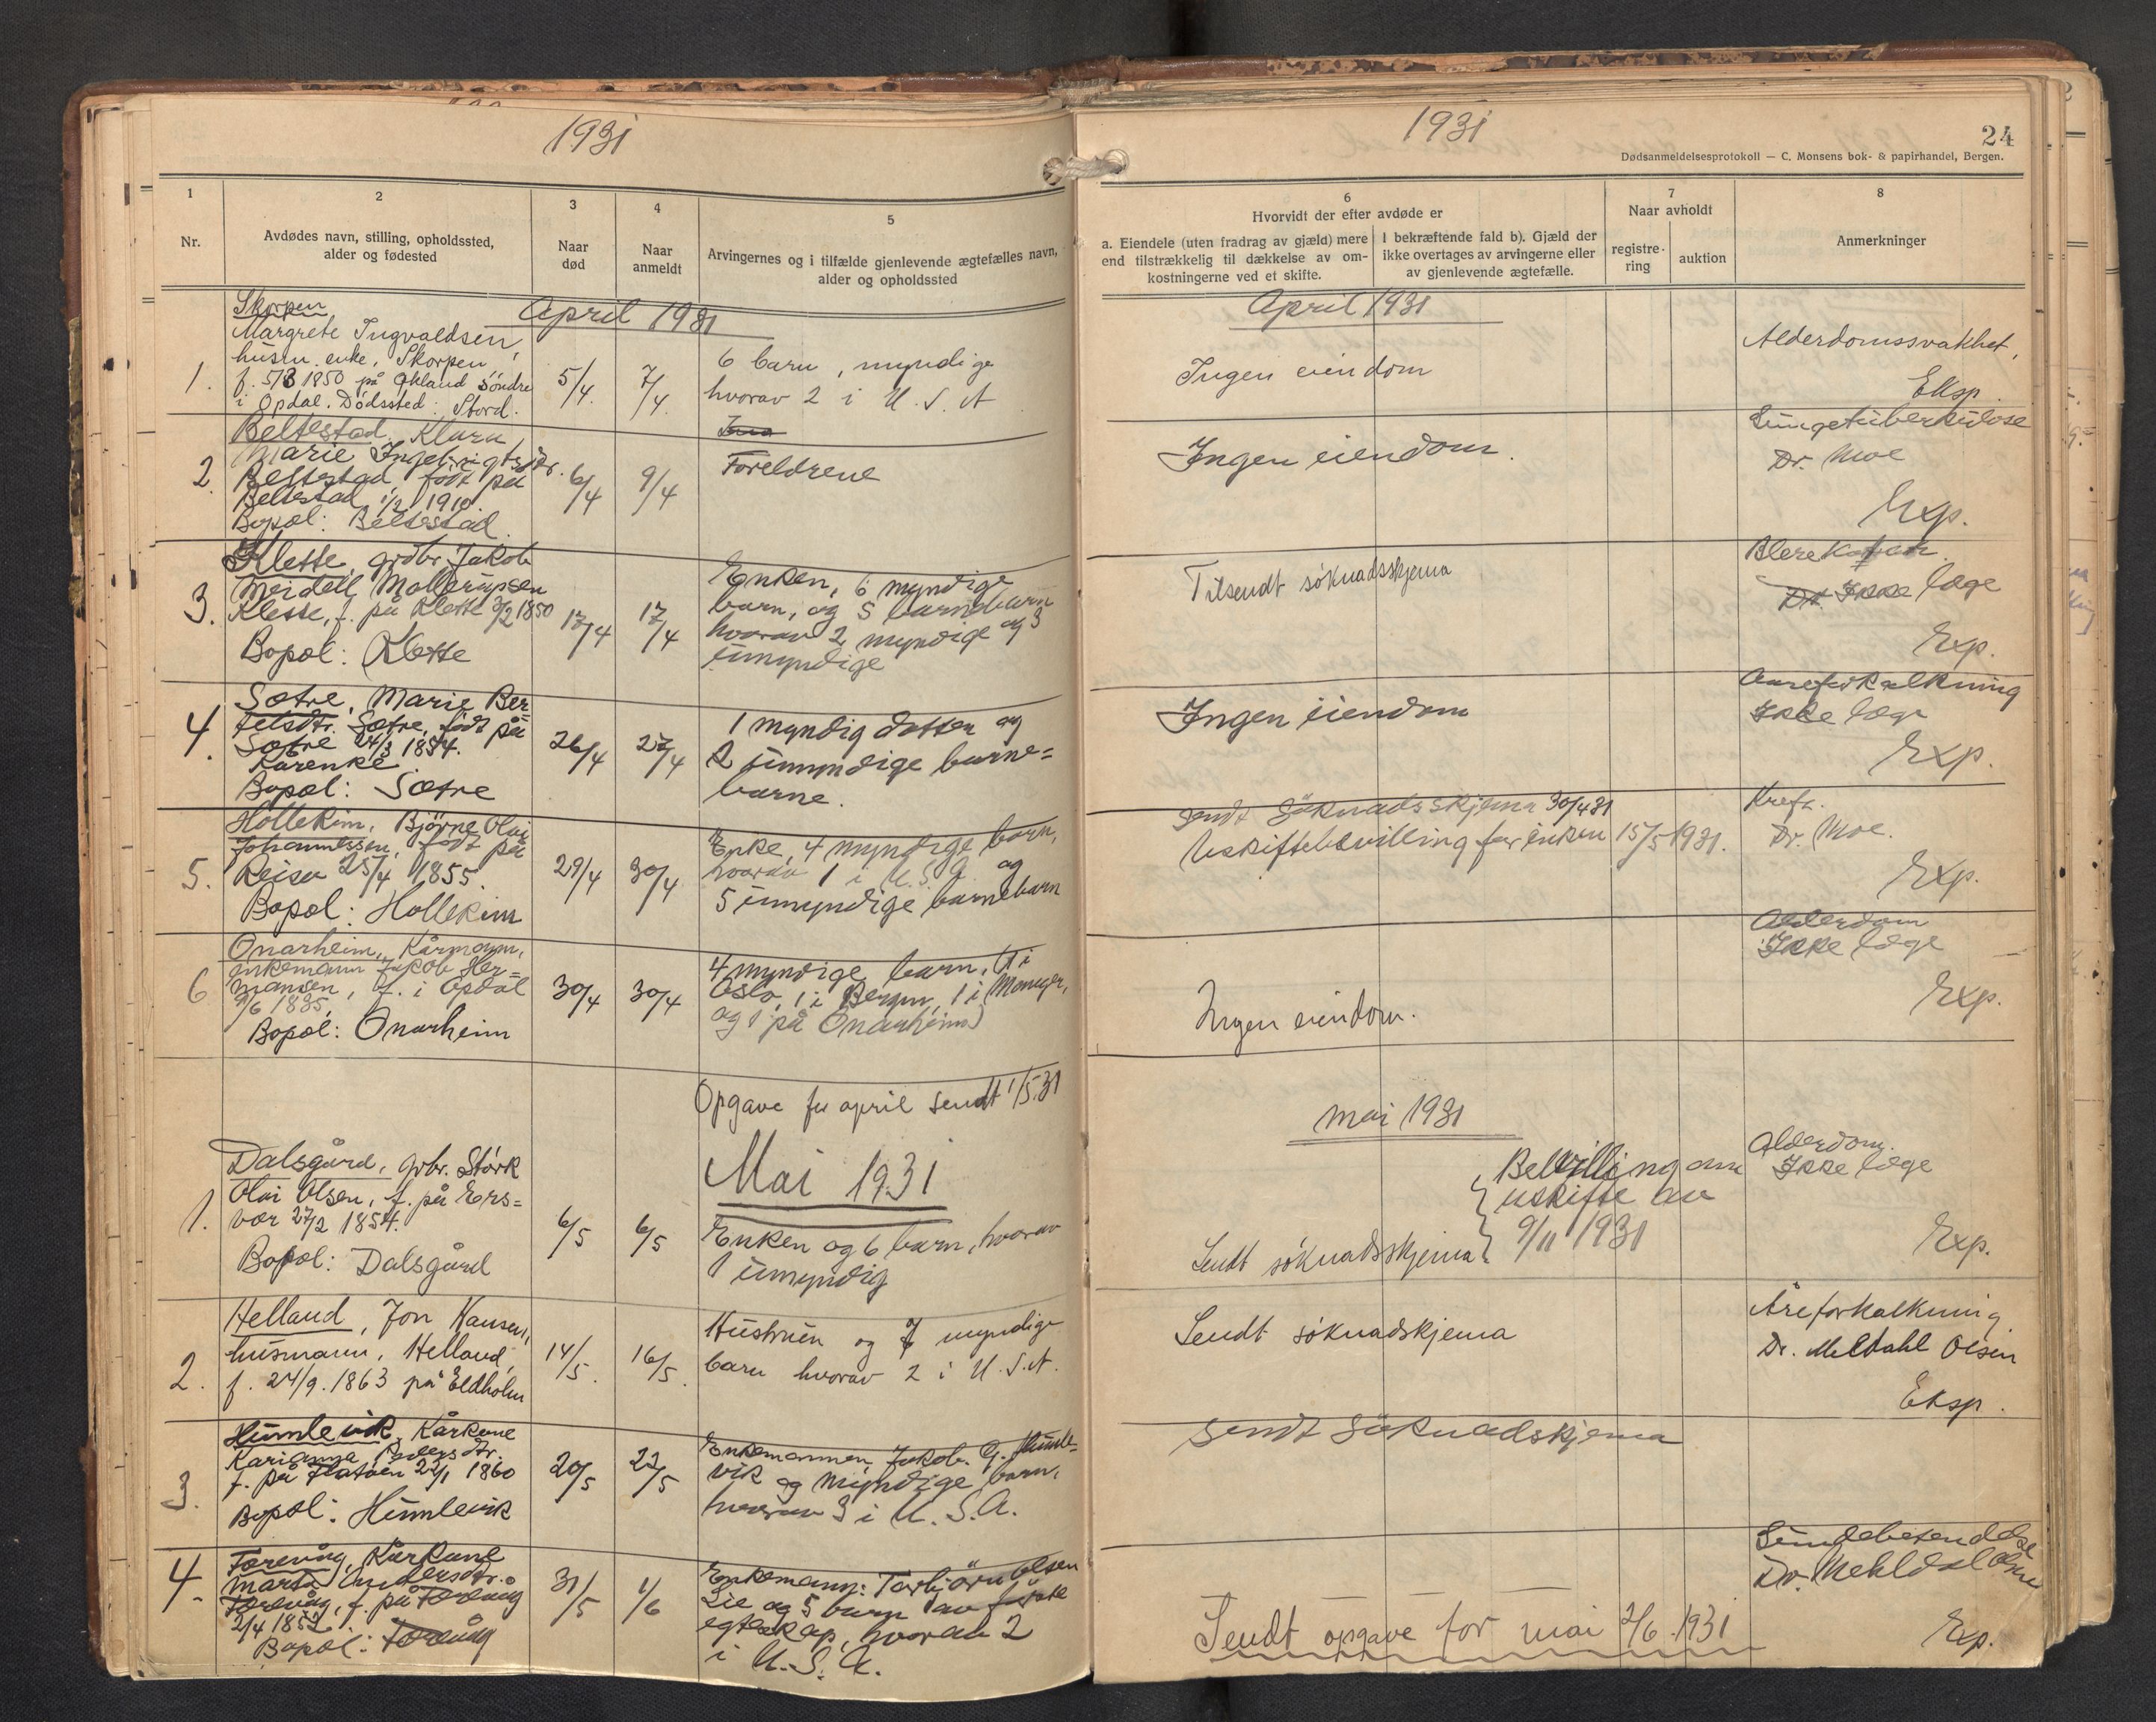 1931
1
2
3
4
5
Nr.
Avdødes navn, stilling, opholdssted,
alder og fødested
Naar
død
Naar
anmeldt
Arvingernes og i tilfælde gjenlevende ægtefælles navn,
alder og opholdssted
April 1931
Skorpen
Margrete Ingvaldsen,
husm. enke, Skorpen,
1. f. 5/3 1850 på Økland Söndre 5/4. 7/4.
i Opdal. Dödssted: Stord.
6 barn, myndige
hvorav 2 i U.S.A
Beltestad, Klara
Marie Ingebrigtsdtr.
2. Beltestad, født på 6/4 9/4
Beltestad 1/2 1910.
Bopæl: Beltestad.
Foreldrene
Klette, grdbr. Jakob
Meidell Mallerupsen
3. Klette, f. på Klette 3/2 1850 17/4 17/4
Bopæl: Klette
Enken, 6 myndige
barn, og 5 barnebarn
hvorav 2 myndige og 3
umyndige
Sætre, Marie Ber=
4. telsdtr. Sætre, født på
Sætre 24/3 1854. 26/4 27/4
Kårenke
Bopæl: Sætre
1 myndig datter og
2 umyndige barne=
barne.
Hollekim, Björne Olai
Johannessen, født på
5. Reisa 25/4 1855. 29/4 30/4
Bopæl: Hollekim
Enke, 4 myndige barn,
hvorav 1 i U.S.A. og
5 umyndige barnebarn
Onarheim, Kårmann,
enkemann Jakob Her=
6 mansen, f. i Opdal 30/4 30/4
9/6 1835.
Bopæl: Onarheim
4 myndige barn, (1 i
Oslo, 1 i Bergen, 1 i Manger,
og 1 på Onarheim)
Opgave for april sendt 1/5.31
Mai 1931
Dalsgård, grbr. Störk
Olai Olsen, f. på Ers=
1. vær 27/2 1854. 6/5 6/5
Bopæl: Dalsgård
Enken og 6 barn, hvorav
1 umyndig
Helland, Jon Hansen,
husmann, Helland, 14/5. 16/5.
2. f. 24/9. 1863 på Eldholm
Hustruen og 7 myndige
barn hvorav 2 i U.S.A.
Humlevik, Kårkone
Karianne Andersdtr.
f. på Flatöen 22/1 1860 20/5 22/5
3. Bopæl: Humlevik
Enkemannen Jakob G. Humle=
vik og myndige barn,
hvorav 3 i U.S.A.
Færevåg, Kårkone
4. Marta Andersdtr.
Færevåg, f. på Færevåg 31/5 1/6
2/4 1852.
Bopæl: Færevåg
Enkemann: Torbjörn Olsen
Lie og 5 barn av förste
egteskap, hvorav 2
i U.S.A.
1931
24
Dødsanmeldelsesprotokoll — C. Monsens bok- & papirhandel, Bergen.
6
7
8
Hvorvidt der efter avdøde er
a. Eiendele (uten fradrag av gjæld) mere
end tilstrækkelig til dækkelse av om-
kostningerne ved et skifte.
I bekræftende fald b). Gjæld der
ikke overtages av arvingerne eller
av gjenlevende ægtefælle.
Naar avholdt
registre-
ring
auktion
Anmerkninger
April 1931
Ingen eiendom
Alderdomssvakhet,
Eksp.
Ingen eiendom.
Lungetuberkulose
Dr. Moe
Exp.
Tilsendt söknadsskjema
Blerekatarr.
Ikke læge
Exp.
Ingen eiendom
Aareforkalkning
Ikke læge
Exp.
Sendt Söknadsskjema 30/4 31
Uskiftebevilling for enken 15/5 1931.
Kreft.
Dr. Moe.
Exp.
Ingen eiendom.
Alderdom
Ikke læge
Exp.
Mai 1931
Sendt söknadsskjema.
Bevilling om
uskifte av
9/11 1931
Alderdom.
Ikke læge
Exp.
Sendt söknadskjema
Åreforkalkning
Dr. Meldahl Olsen
Eksp.
Sendt Söknadskjema
Lungebetendelse
Dr. Mehldal Olsen
Exp.
Sendt opgave for mai 2/6. 1931